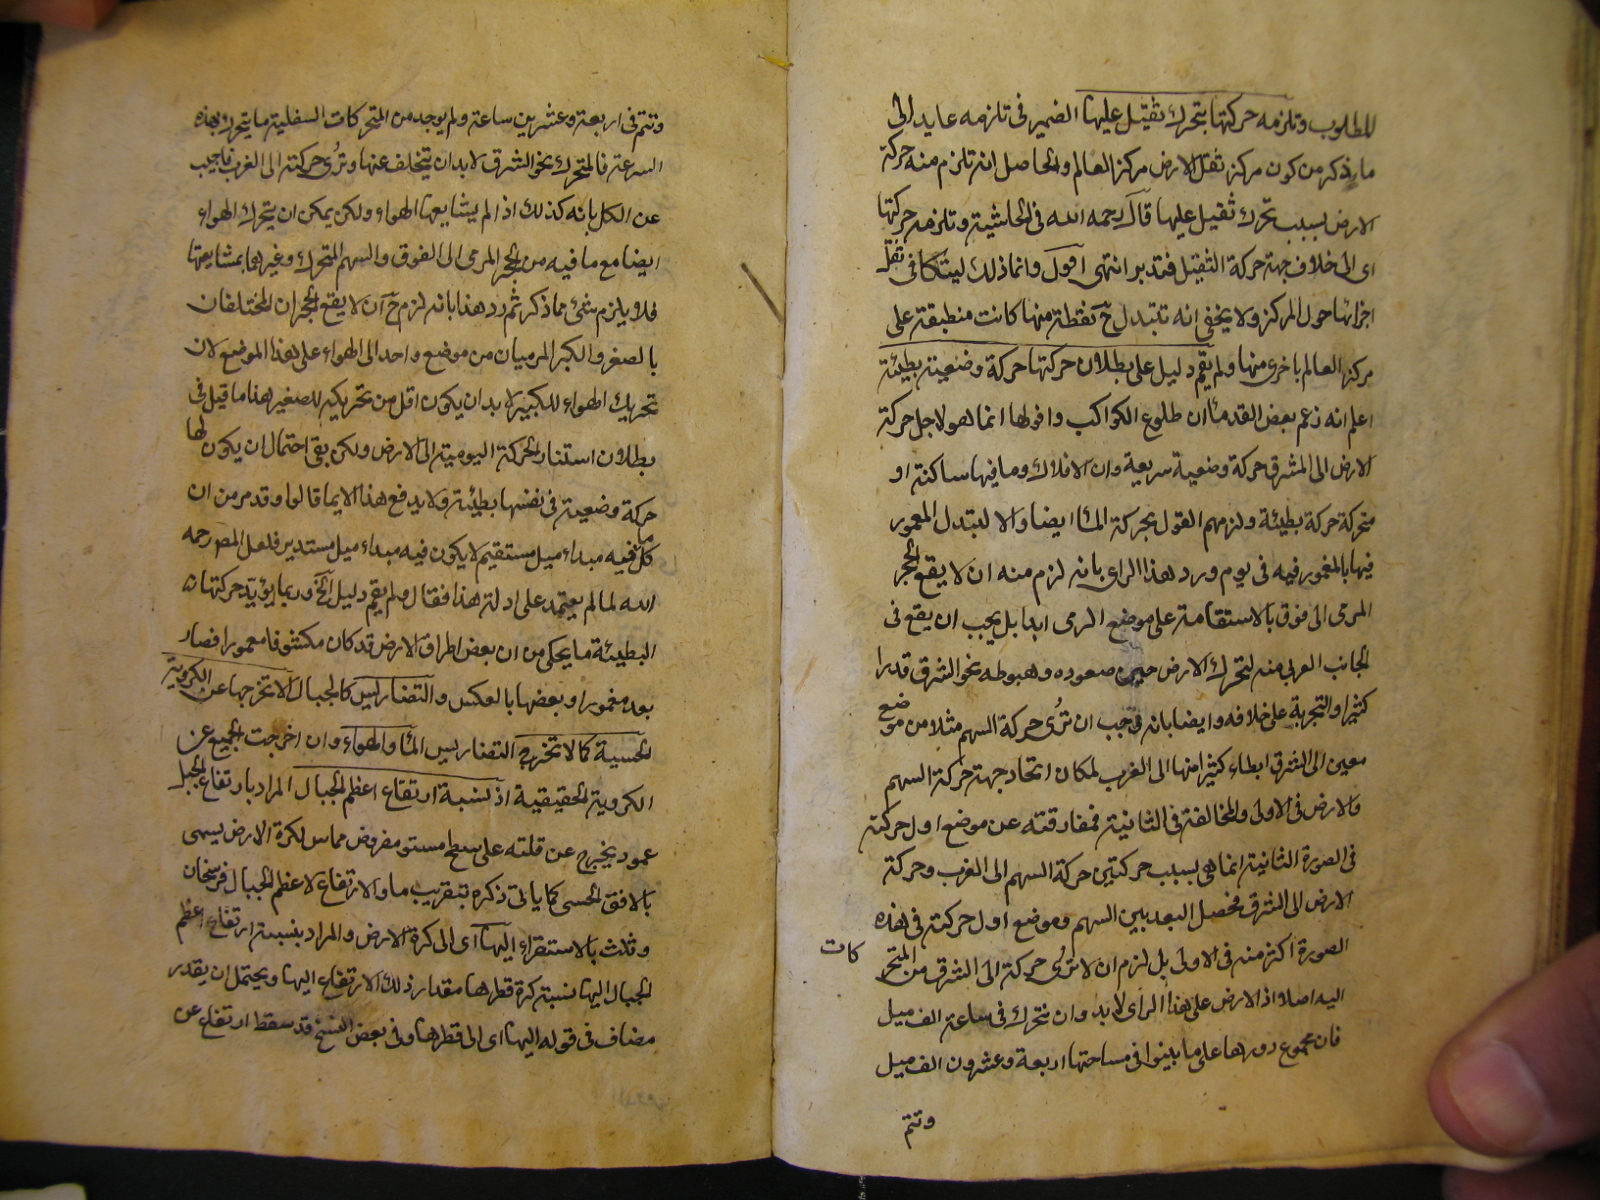 للمطلوب وتلزمه حركتها بتحرك ثقيل عليها الضمير فى تلزمه عايد الى
ما ذكر من كون مركز ثقل الارض مركز العالم والحاصل انه تلزم منه حركة
الارض بسبب تحرك ثقيل عليها قال رحمه الله فى الحاشية وتلزمه حركتها
اى الى خلاف جهة حركة الثقيل فتدبر انتهى اقول وانما ذلك ليتكافى ثقل
اجزائها حول المركز ولا يخفى انه تتبدل ح نقطة منها كانت منطبقة على
مركز العالم باخرى منها ولم يقم دليل على بطلان حركتها حركة وضعية بطيئة
اعلم انه زعم بعض القدماء ان طلوع الكواكب وافولها انما هو لاجل حركة
الارض الى المشرق حركة وضعية سريعة وان الافلاك وما فيها ساكنة او
متحركة حركة بطيئة ولزمهم القول بحركة الماء ايضا والا لتبدل المعمور
فيها بالمغمور فيه فى يوم ورد هذا الراى بانه لزم منه ان لا يقع الحجر
المرمى الى فوق بالاستقامة على موضع الرمى ابدا بل يجب ان يقع فى
الجانب الغربى منه لتحرك الارض حين صعوده وهبوطه نحو الشرق قدرا
كثيرا والتجربة على خلافه وايضا بانه يجب ان ترى حركة السهم مثلا من موضع
معين الى الشرق ابطاء كثيرا منها الى الغرب لمكان اتحاد جهة حركة السهم
والارض فى الاولى والمخالفة فى الثانية فمفارقته عن موضع اول حركته
فى الصورة الثانية انما هى بسبب حركتين حركة السهم الى الغرب وحركة
الارض الى الشرق فحصل البعد بين السهم وموضع اول حركته فى هذه
الصورة اكثر منه فى الاولى بل لزم ان لا ترى حركة الى الشرق من المتحر كات
اليه اصلا اذ الارض على هذا الراى لا بد وان تتحرك فى ساعة الف ميل
فان مجموع دورها على ما بينوا فى مساحتها اربعة وعشرون الف ميل
وتتم
وتتم فى اربعة وعشرين ساعة ولم يوجد من المتحركات السفلية ما يتحرك بهذه
السرعة فالمتحرك نحو الشرق لا بد ان يتخلف عنها وترى حركته الى الغرب فاجيب
عن الكل بانه كذلك اذا لم يشايعها الهواء ولكن يمكن ان يتحرك الهواء
ايضا مع ما فيه من الحجر المرمى الى الفوق والسهم المتحرك وغيرهما بمشايعتها
فلا يلزم شئ مما ذكر ثم رد هذا بانه لزم ح ان لا يقع الحجران المختلفان
بالصغر والكبر المرميان من موضع واحد الى الهواء على هذا الموضع لان
تحريك الهواء للكبير لا بد ان يكون اقل من تحريكه للصغير هذا ما قيل فى
بطلان استناد الحركة اليومية الى الارض ولكن بقى احتمال ان يكون لها
حركة وضعية فى نفسها بطيئة ولا يدفع هذا الا بما قالوا وقد مر من ان
كل ما فيه مبداء ميل مستقيم لا يكون فيه مبداء ميل مستدير فلعل المصـ رحمه
الله لما لم يعتمد على ادلة هذا فقال ولم يقم دليل الخ وربما يؤيد حركتها
البطيئة ما يحكى من ان بعض اطراف الارض قد كان مكشوفا معمورا فصار
بعد مغمورا وبعضها بالعكس والتضاريس كالجبال لا تخرجها عن الكروية
الحسية كما لا تخرج التضاريس الماء والهواء وان اخرجت الجميع عن
الكروية الحقيقية اذ نسبة ارتفاع اعظم الجبال المراد بارتفاع الجبل
عمود يخرج عن قلته على سطح مستو مفروض مماس لكرة الارض يسمى
بالافق الحسى كما ياتى ذكره بتقريب ما والارتفاع لاعظم الجبال فرسخان
وثلث بالاستقراء اليها اى الى كرة الارض والمراد بنسبة ارتفاع اعظم
الجبال اليها نسبة كرة قطرها مقدار ذلك الارتفاع اليها ويحتمل ان يقدر
مضاف فى قوله اليها اى الى قطرها وفى بعض النسخ قد سقط ارتفاع عن